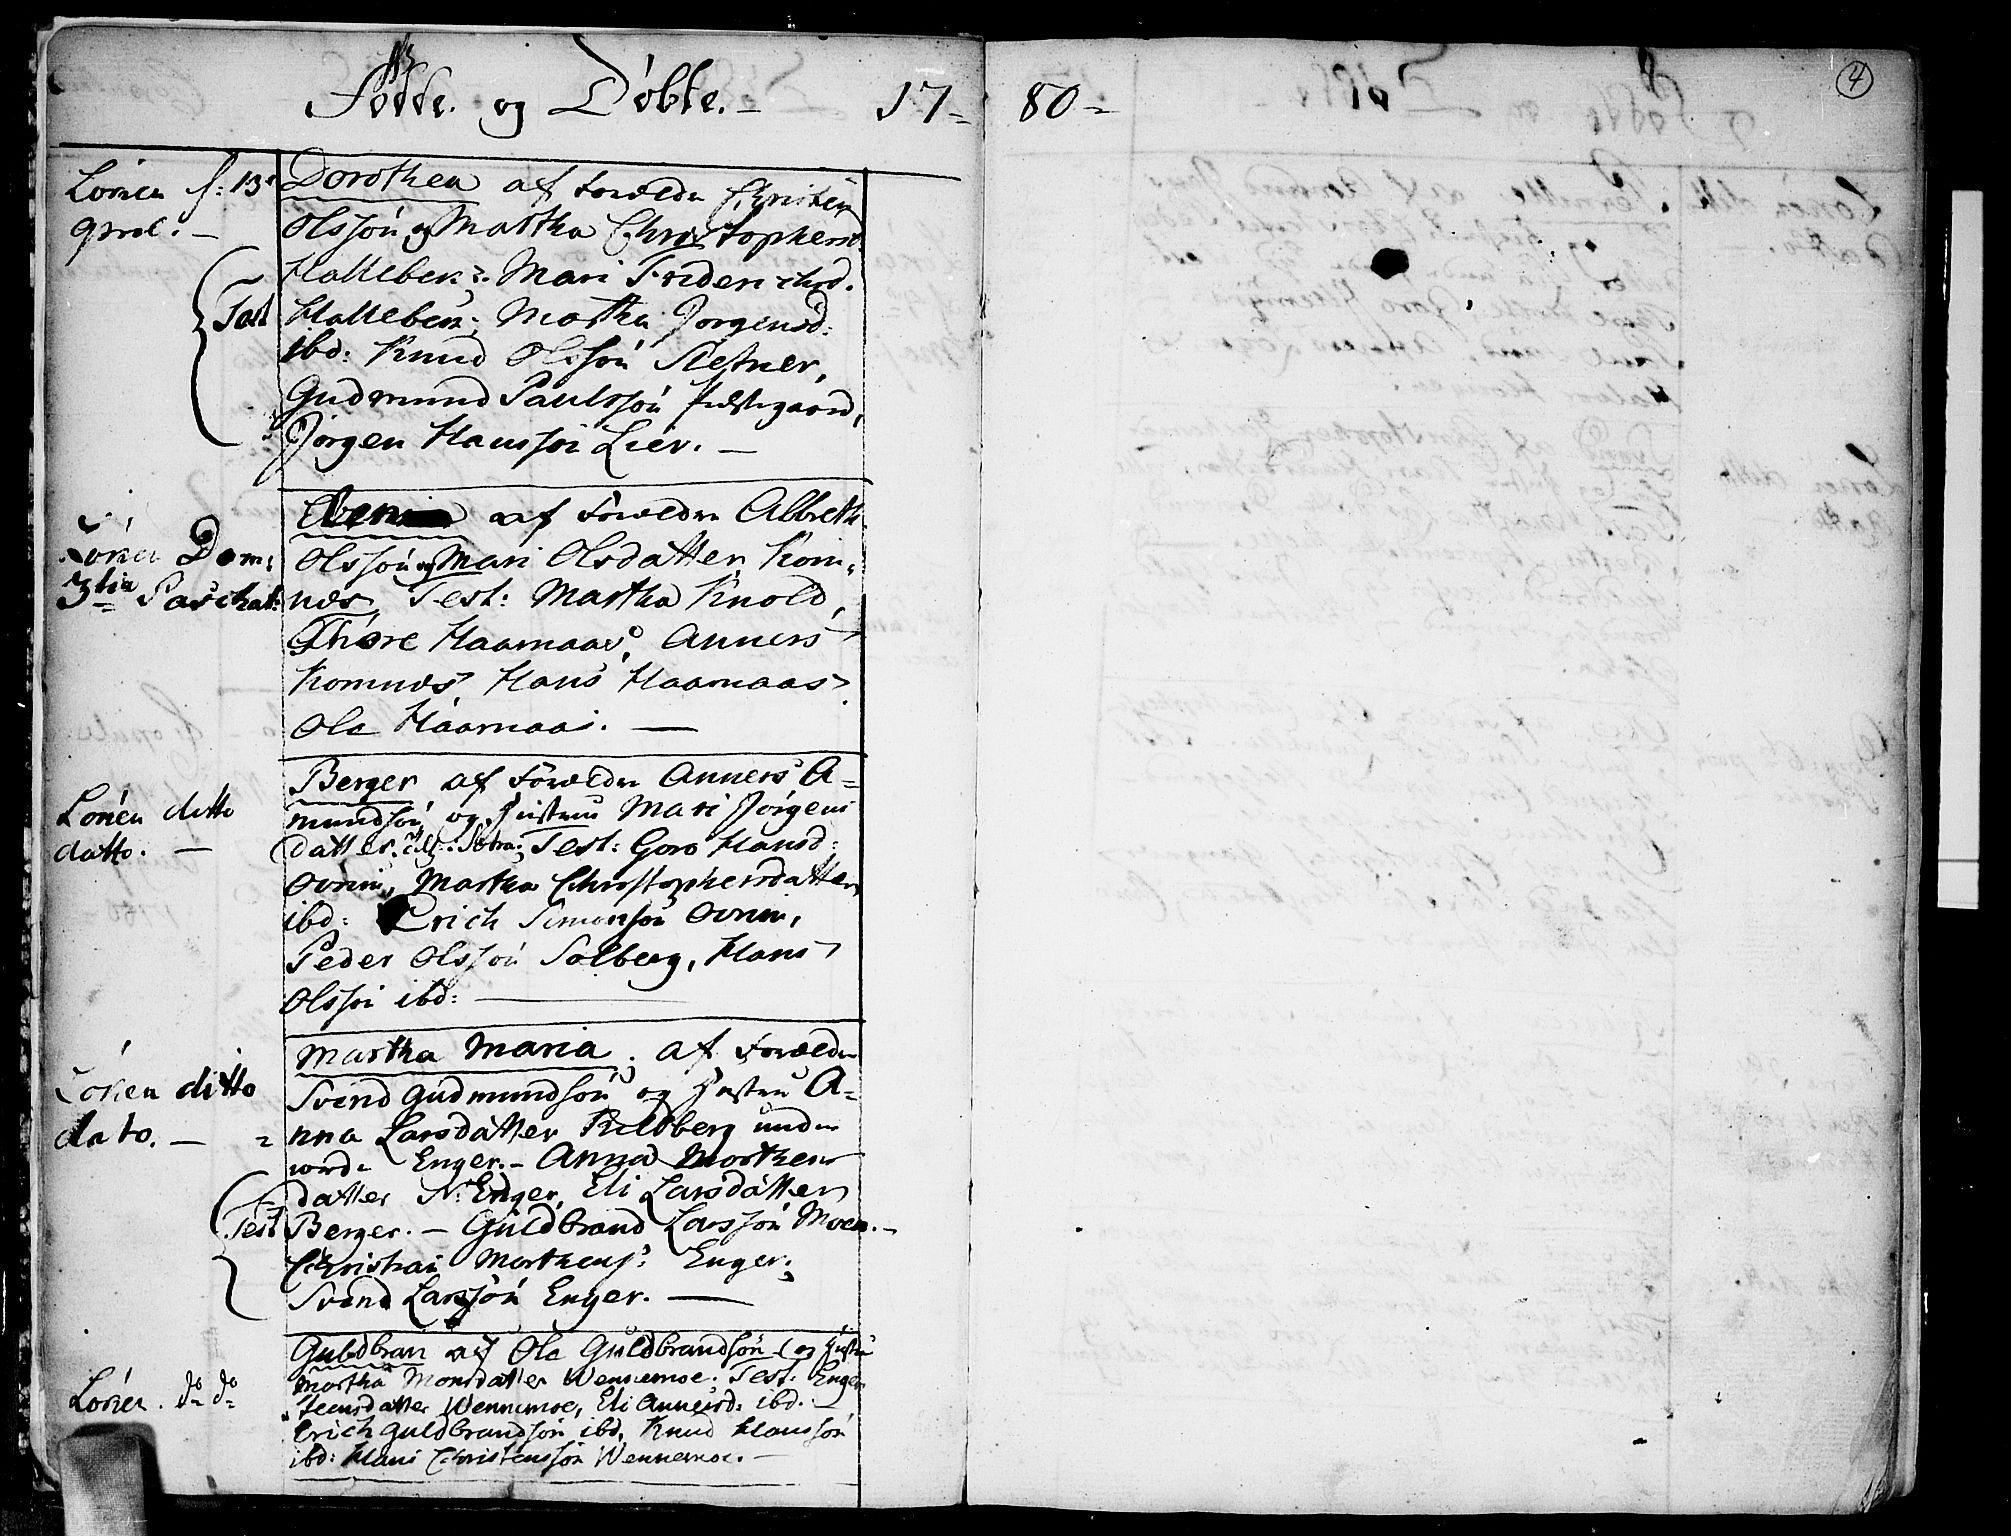 Fødde og Døbte. - 17- 80-
4
Lorien f: 13de
April. -
Dorothea af Forældre Christen
Olssøn og Martha Christophersd.
Hallebek: Mari Friderichsd.
Test Hallebek; Martha Jørgensd:
ibd: Knud Olssøn Sletner,
Gudmund Paulssøn Præstegaard,
Jørgen Hanssøn Lier. -
Lorien Dom:
3tia Paschat:
af Forældre Albreth
Olssøn og Mari Olsdatter Kom-
næs, Test: Martha Knold,
Thore Haarnaas, Anners
Komnæs, Hans Haarnaas
Ola Haarnaas. -
Lorien ditto
datto. -
Berger af Forældre Anners A-
mundsøn og Hustrue Mari Jørgens
datter. Test: Goro Hansd:
Ovrin, Martha Christophersdatter
ibd: Erich Simonsøn Ovrin,
Peder Olssøn Solberg, Hans
Olssøn ibd: -
Lorien ditto
dato. -
Martha Maria, af Forældre
Svend Gudmundsøn og Hustru A-
nna Larsdatter Kuldberg under
Enger. - Anna Morthens
datter N: Enger, Eli Larsdatter
Test Berger. - Guldbrand Larssøn Moen. -
Christian Morthens: Enger,
Svend Larssøn Enger. -
Lorien. do do
Guldbran af Ola Guldbrandsøn og Hustru
Martha Monsdatter Wennemoe. Test: Enger
Steensdatter Wennemoe, Eli Annersd: ibd. -
Erich Guldbrandsøn ibd, Knud Hanssøn
ibd: Hans Christenssøn Wennemoe. -